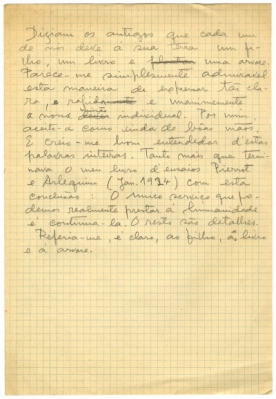 Diziam os antigos que cada um
de nós deve à sua terra um fi-
lho, um livro e uma árvore.
Parece-me simplesmente admirável
esta maneira de expressar tão cla-
ra, e rápida e unanimemente
a nossa individual. Por mim
aceito-a como vinda de boas mãos.
E creio-me bom entendedor destas
palavras inteiras. Tanto mais que termi-
nava o meu livro d'ensaios Pierrot
e Arlequim (Jan. 1924) com esta
conclusão: O único serviço que po-
demos realmente prestar à humanidade
é continuá-la. O resto são detalhes.
Referia-me, é claro, ao filho, ao livro
e à árvore.